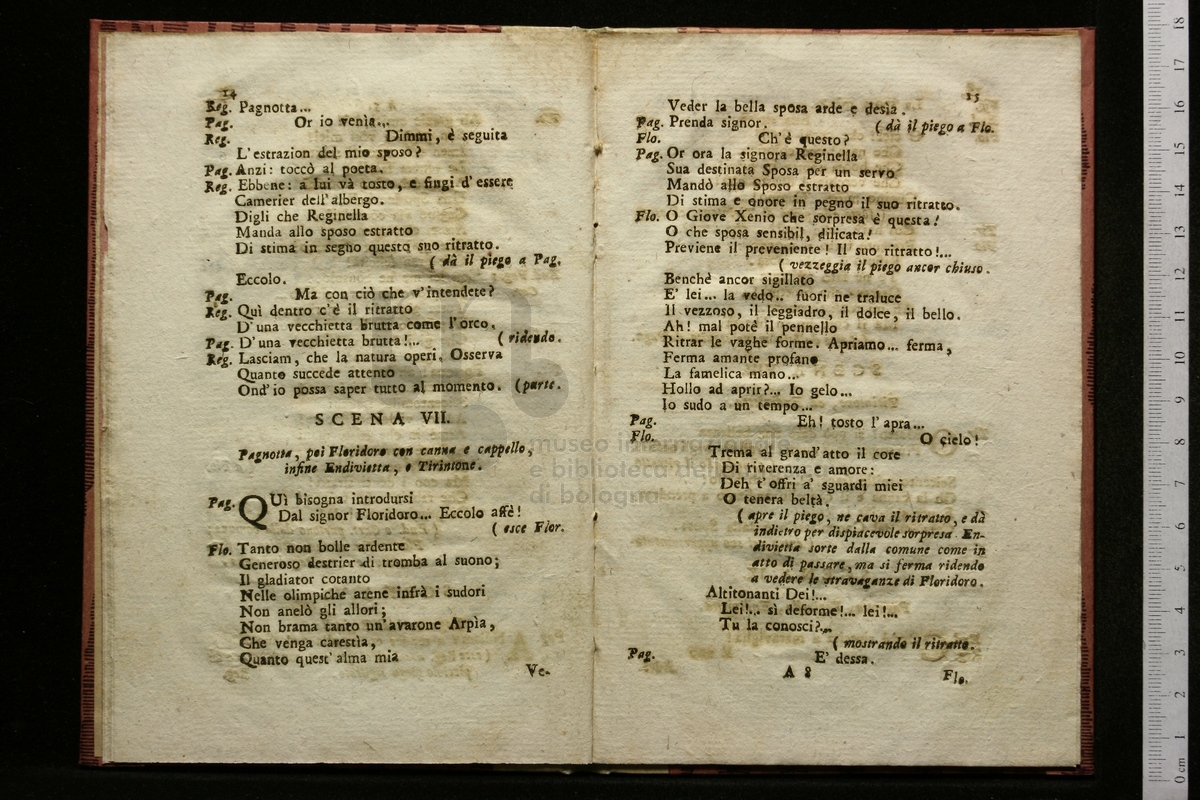 14
Reg. Pagnotta...
Pag. Or io venìa...
Reg. Dimmi, è seguita
L'estrazion del mio sposo?
Pag. Anzi: toccò al poeta.
Reg. Ebbene: a lui và tosto, e fingi d'essere
Camerier dell'albergo.
Digli che Reginella
Manda allo sposo estratto
Di stima in segno questo suo ritratto.
( dà il piego a Pag.
Eccolo.
Pag. Ma con ciò che v'intendete?
Reg. Quì dentro c'è il ritratto
D'una vecchietta brutta come l'orco.
Pag. D'una vecchietta brutta!... ( ridendo.
Reg. Lasciam, che la natura operi. Osserva
Quanto succede attento
Ond'io possa saper tutto al momento. (parte.
SCENA VII.
Pagnotta, poi Floridoro con canna e cappello,
infine Endivietta, e Tirintone.
Pag. QUì bisogna introdursi
Dal signor Floridoro... Eccolo affè!
( esce Flor.
Flo. Tanto non bolle ardente
Generoso destrier di tromba al suono;
Il gladiator cotanto
Nelle olimpiche arene infrà i sudori
Non anelò gli allori;
Non brama tanto un'avarone Arpìa,
Che venga carestìa,
Quanto quest'alma mia
Ve-
15
Veder la bella sposa arde e desìa.
Pag. Prenda signor. ( dà il piego a Flo.
Flo. Ch'è questo?
Pag. Or ora la signora Reginella
Sua destinata Sposa per un servo
Mandò allo Sposo estratto
Di stima e onore in pegno il suo ritratto.
Flo. O Giove Xenio che sorpresa è questa!
O che sposa sensibil, dilicata!
Previene il preveniente! Il suo ritratto!...
( vezzeggia il piego ancor chiuso.
Benchè ancor sigillato
E' lei... la vedo.. fuori ne traluce
Il vezzoso, il leggiadro, il dolce, il bello.
Ah! mal potè il pennello
Ritrar le vaghe forme. Apriamo... ferma,
Ferma amante profano
La famelica mano...
Hollo ad aprir?... Io gelo...
Io sudo a un tempo...
Pag. Eh! tosto l'apra...
Flo. O cielo!
Trema al grand'atto il core
Di riverenza e amore:
Deh t'offri a' sguardi miei
O tenera beltà.
( apre il piego, ne cava il ritratto, e dà
indietro per dispiacevole sorpresa. En-
divietta sorte dalla comune come in
atto di passare, ma si ferma ridendo
a vedere le stravaganze di Floridoro.
Altitonanti Dei!...
Lei!.. sì deforme!... lei!...
Tu la conosci?...
( mostrando il ritratto.
Pag. E' dessa.
A 8 Flo.
museo internazionale
e biblioteca della
di bologna